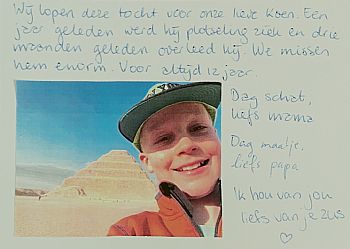 Wij lopen deze tocht voor onze lieve Koen. Een
jaar geleden werd hij plotseling ziek en drie
maanden geleden overleed hij. We missen
hem enorm. Voor altijd 12 jaar.
Dag schat,
liefs mama
Dag maatje,
liefs papa
Ik hou van jou
liefs van je zus